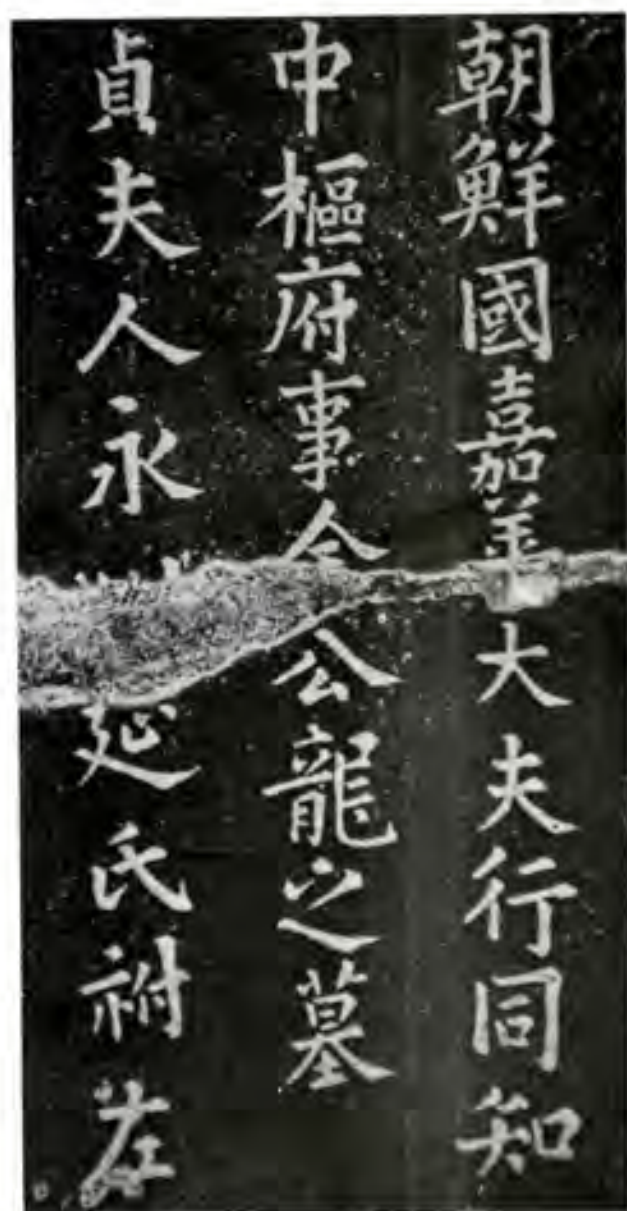 朝鮮國嘉善大夫行同知
中樞府事公龍之墓
貞夫人永延氏祔左